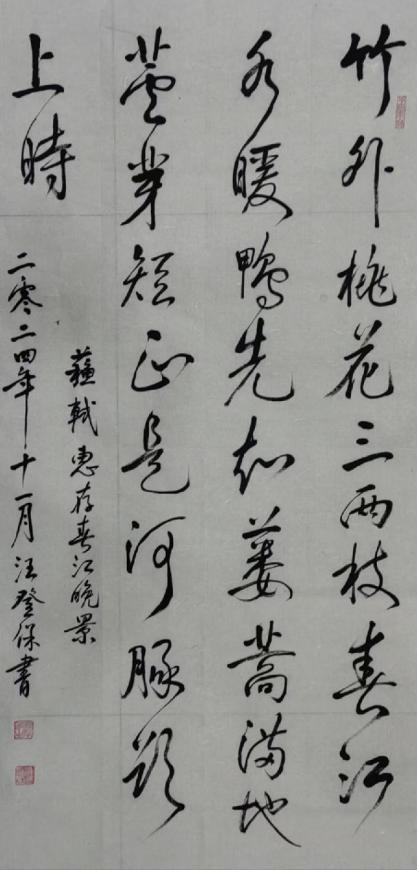 竹外桃花三兩枝春江
水暖鴨先知蔞蒿滿地
蘆芽短正是河豚欲
上時
蘇軾惠存春江晚景
二零二四年十一月汪登保書